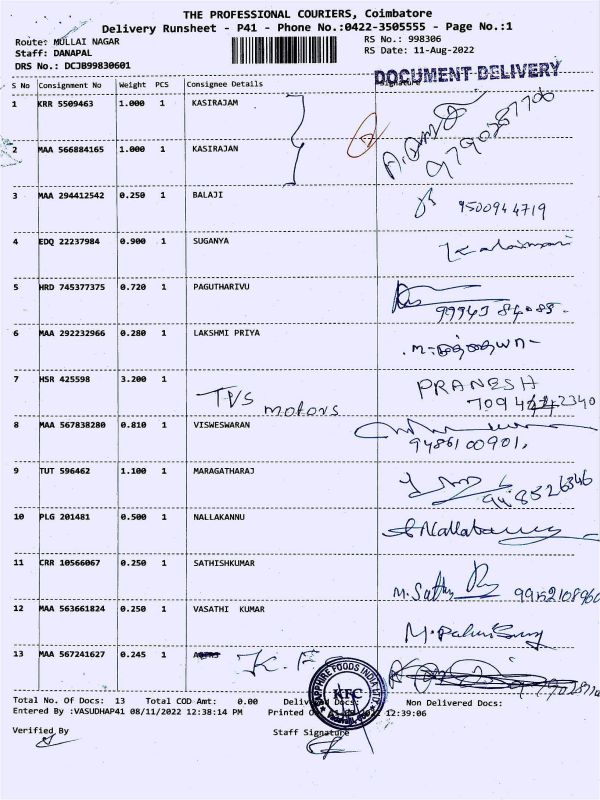 THE PROFESSIONAL COURIERS, Coimbatore
Delivery Runsheet - P41 - Phone No.:0422-3505555 - Page No.:1
Route: MULLAI NAGAR RS No.: 998306
Staff: DANAPAL RS Date: 11-Aug-2022
DRS No.: DCJB99830601
DOCUMENT DELIVERY
S No Consignment No Weight PCS Consignee Details Signature
1 KRR 5509463 1.000 1 KASIRAJAM
2 MAA 566884165 1.000 1 KASIRAJAN
3 MAA 294412542 0.250 1 BALAJI
9500944719
4 EDQ 22237984 0.900 1 SUGANYA
5 HRD 745377375 0.720 1 PAGUTHARIVU
6 MAA 292232966 0.280 1 LAKSHMI PRIYA
7 HSR 425598 3.200 1 TVS motors PRANESH
8 MAA 567838280 0.810 1 VISWESWARAN
9486100901,
9 TUT 596462 1.100 1 MARAGATHARAJ
10 PLG 201481 0.500 1 NALLAKANNU
11 CRR 10566067 0.250 1 SATHISHKUMAR
9952108960
12 MAA 563661824 0.250 1 VASATHI KUMAR
13 MAA 567241627 0.245 1 K.F
SAPPHIRE FOODS INDIA
KFC
Total No. Of Docs: 13 Total COD Amt: 0.00 Delivered Docs: Non Delivered Docs:
Entered By :VASUDHAP41 08/11/2022 12:38:14 PM Printed 12:39:06
Verified By Staff Signature